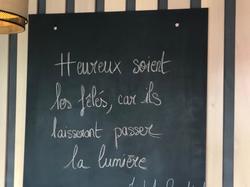 Heureux soient
les fêlés, car ils
laisseront passer
la lumière